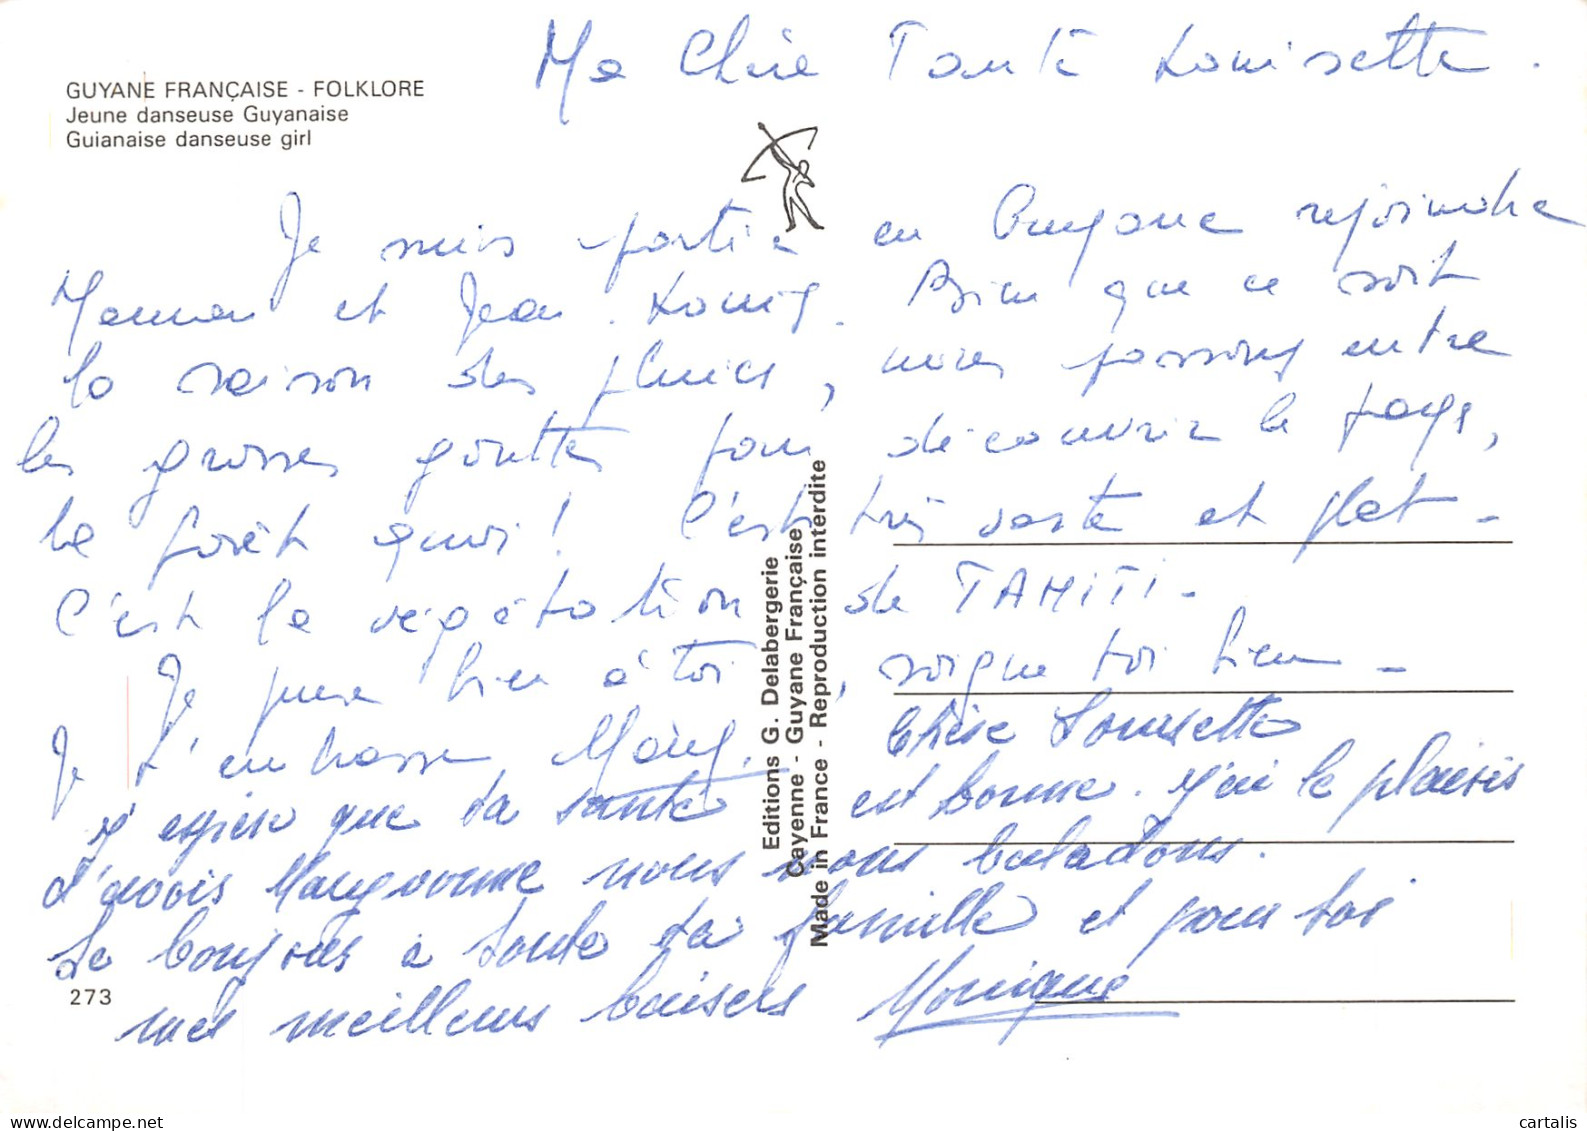 GUYANE FRANÇAISE - FOLKLORE
Jeune danseuse Guyanaise
Guianaise danseuse girl
Ma Chère Tante Louisette.
Je suis partie en Guyane rejoindre
Maman et Jean-Louis. Bien que ce soit
la saison des pluies, nous passons entre
les grosses gouttes pour découvrir le pays,
la forêt quoi! C'est très vaste et plat -
C'est la végétation de TAHITI -
Je pense bien à toi, soigne toi bien -
Je t'embrasse,
Chère Louisette
J'espère que ta santé est bonne. J'ai le plaisir
d'avoir nous nous baladons.
Le bonjour à toute ta famille et pour toi
mes meilleurs baisers Monique
273
Editions G. Delabergerie
Cayenne - Guyane Française
Made in France - Reproduction interdite
cartalis